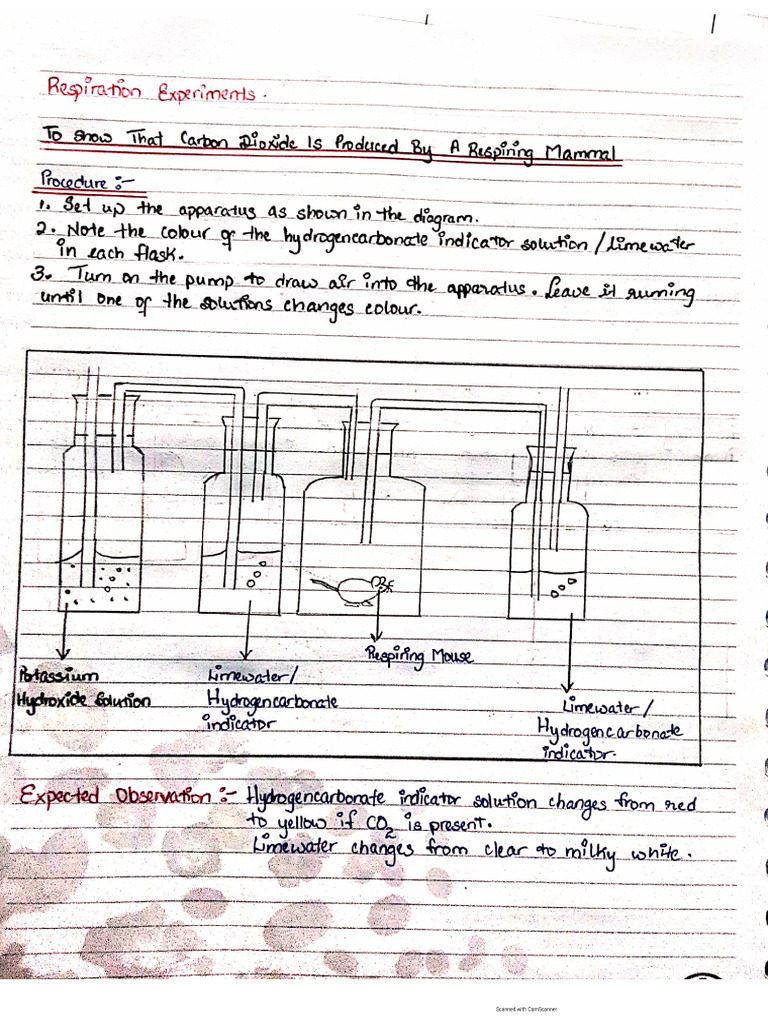 Respiration Experiments.
To show That Carbon Dioxide Is Produced By A Respiring Mammal
Procedure :-
1. Set up the apparatus as shown in the diagram.
2. Note the colour of the hydrogencarbonate indicator solution / limewater
in each flask.
3. Turn on the pump to draw air into the apparatus. Leave it running
until one of the solutions changes colour.
Respiring Mouse
Potassium
Hydroxide Solution
Limewater/
Hydrogencarbonate
indicator
Limewater /
Hydrogencarbonate
indicator.
Expected Observation :- Hydrogencarbonate indicator solution changes from red
to yellow if CO2 is present.
Limewater changes from clear to milky white.
Scanned with CamScanner